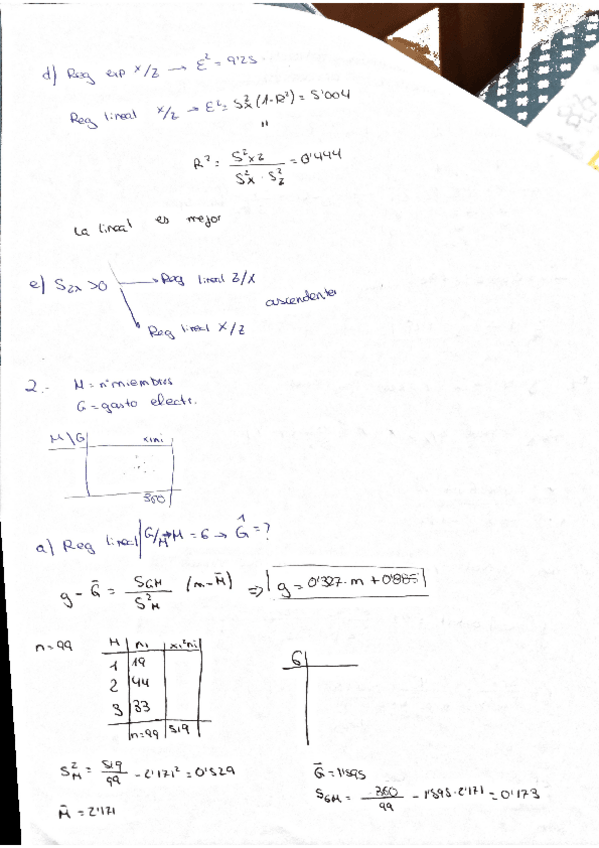 d) Reg exp x/z → ε² = 9'25
Reg lineal x/z → ε² = S²x (1-R²) = 5'004
"
R² = S²xz / S²x · S²z = 0'444
La lineal es mejor
e) Szx > 0 → Reg lineal z/x
ascendentes
Reg lineal x/z
2.- M = nº miembros
G = gasto electr.
M\G
360
a) Reg lineal G/M → M = 6 → Ĝ = ?
g - Ḡ = SGM / S²M (m - M̄) ⇒ g = 0'327·m + 0'885
n = 99
M | ni | xi²ni
1 | 19
2 | 44
3 | 33
n=99 | 519
G
S²M = 519/99 - 2'171² = 0'529
Ḡ = 1'595
SGM = 360/99 - 1'595·2'171 = 0'173
M̄ = 2'171